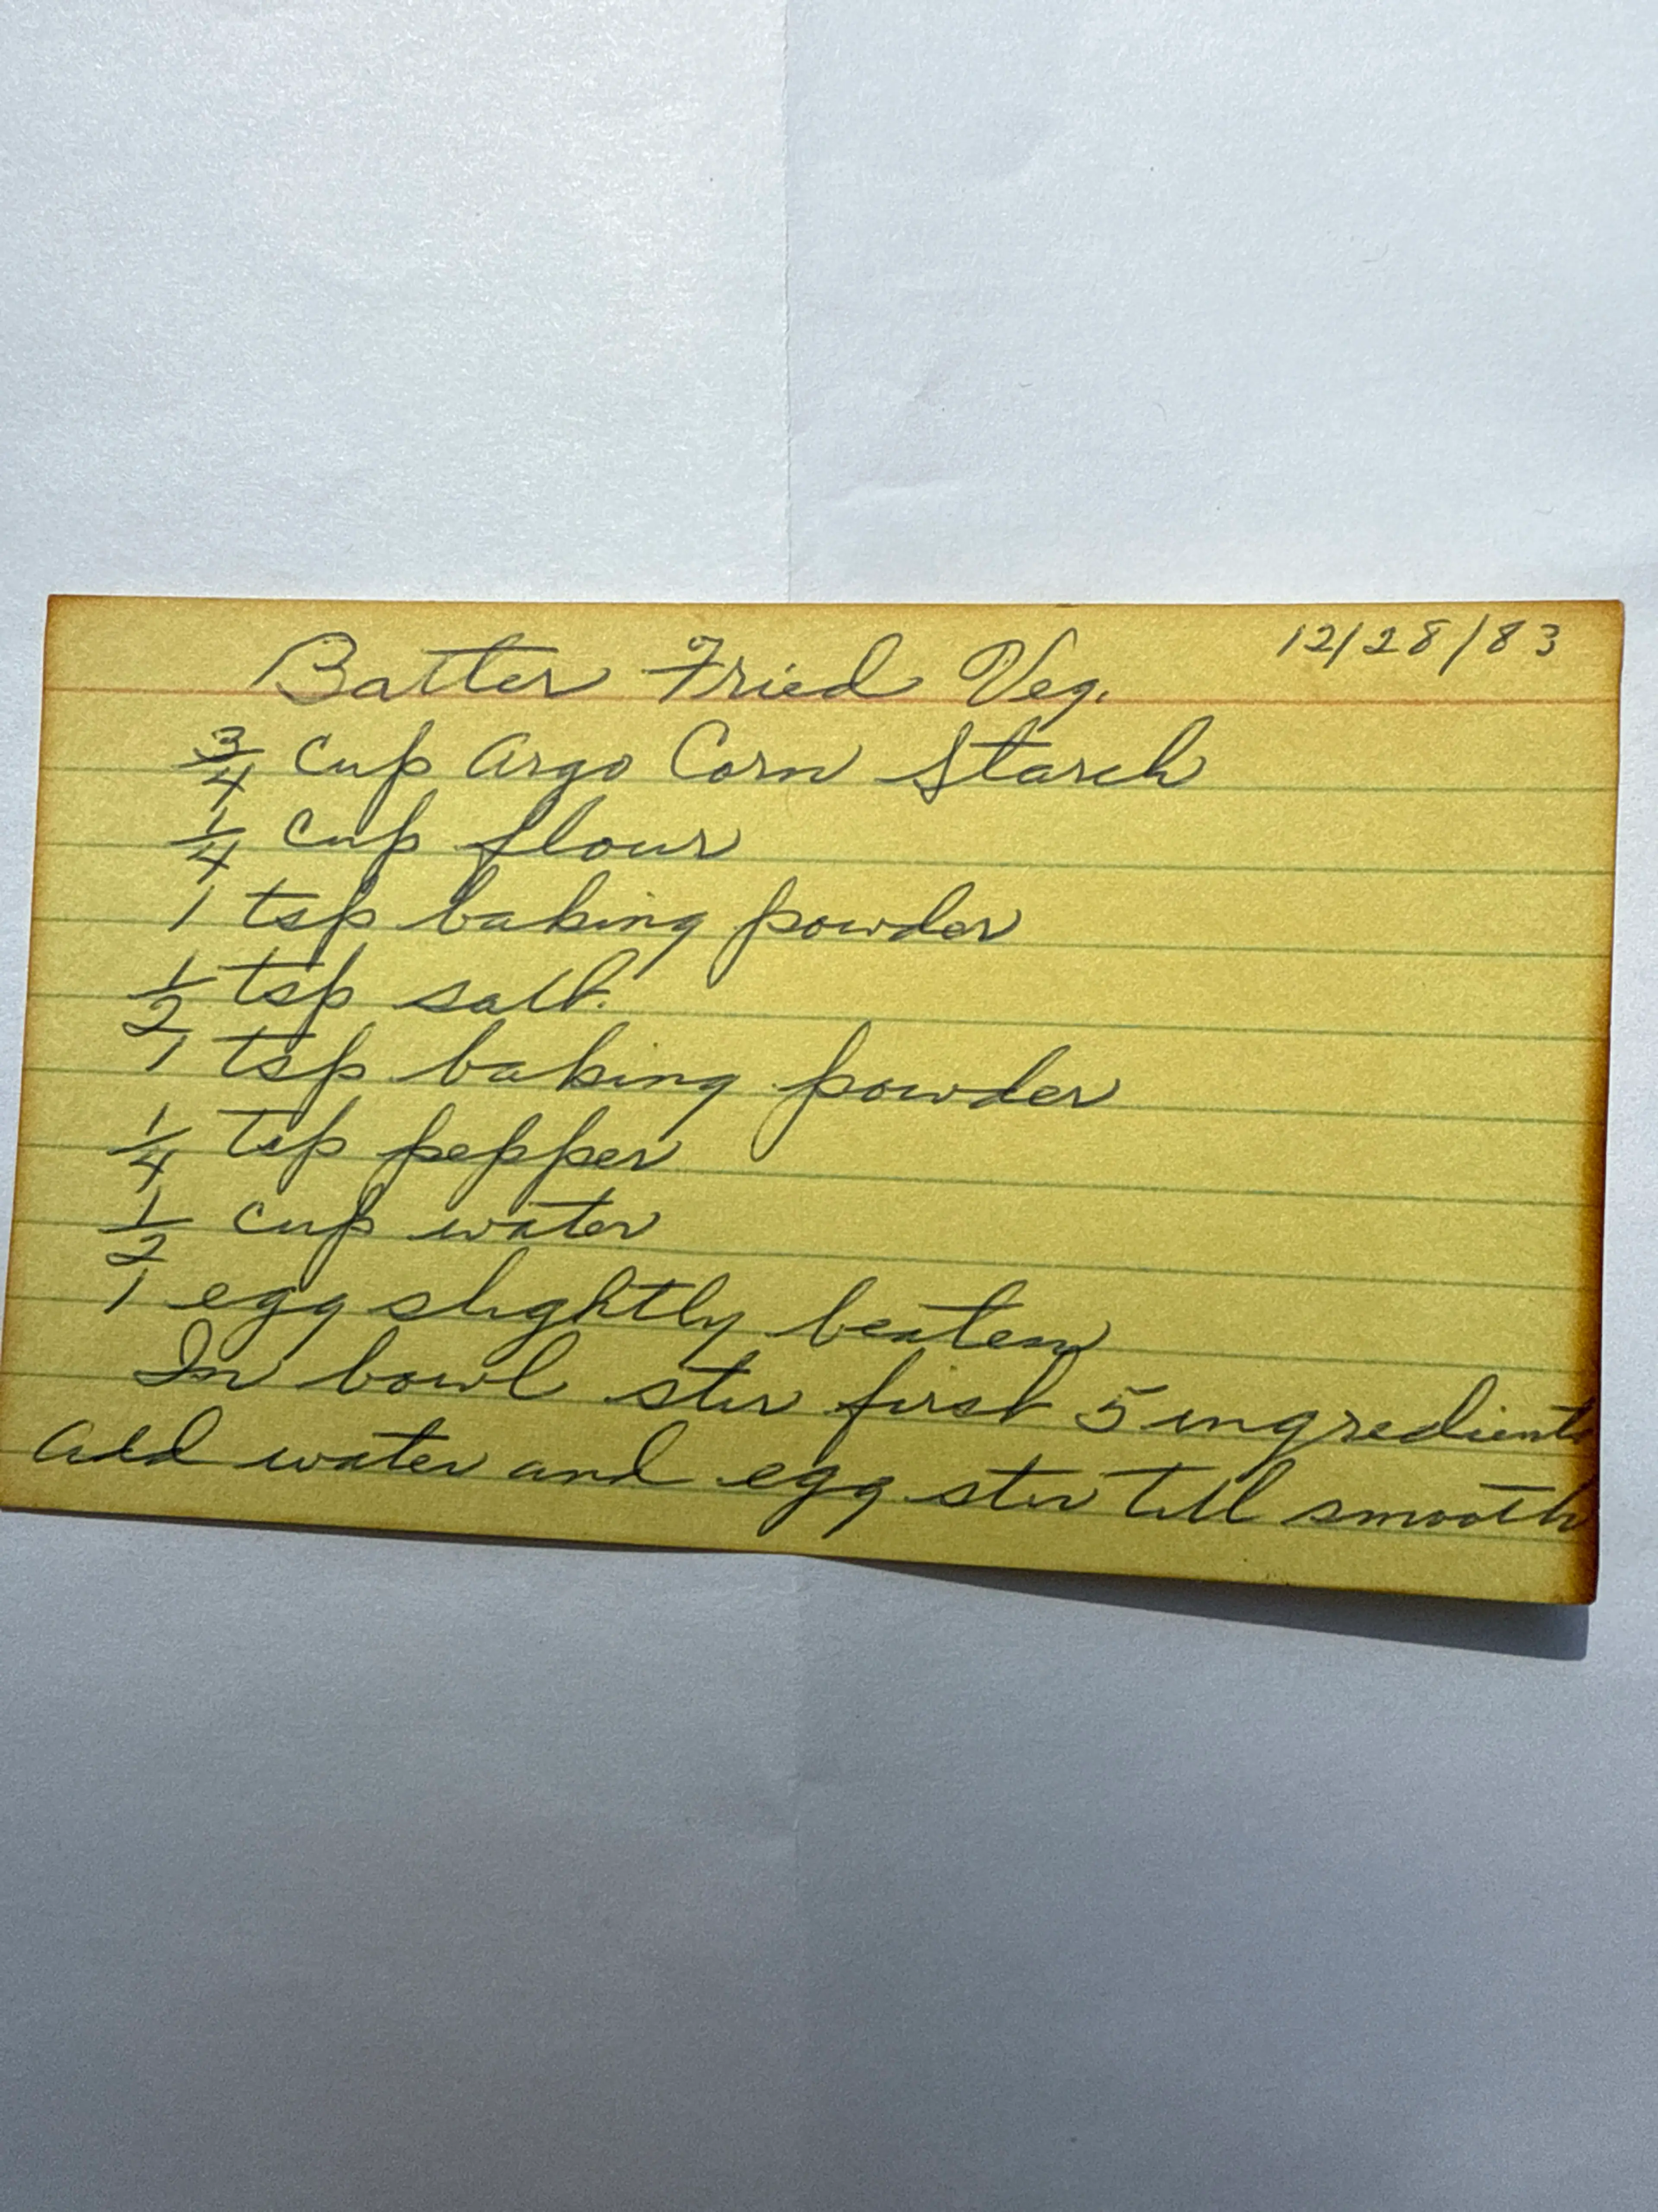 Batter Fried Veg. 12/28/83
3/4 cup Argo Corn Starch
1/4 cup flour
1 tsp baking powder
1/2 tsp salt.
1 tsp baking powder
1/4 tsp pepper
1/2 cup water
1 egg slightly beaten
In bowl stir first 5 ingredients
add water and egg stir till smooth